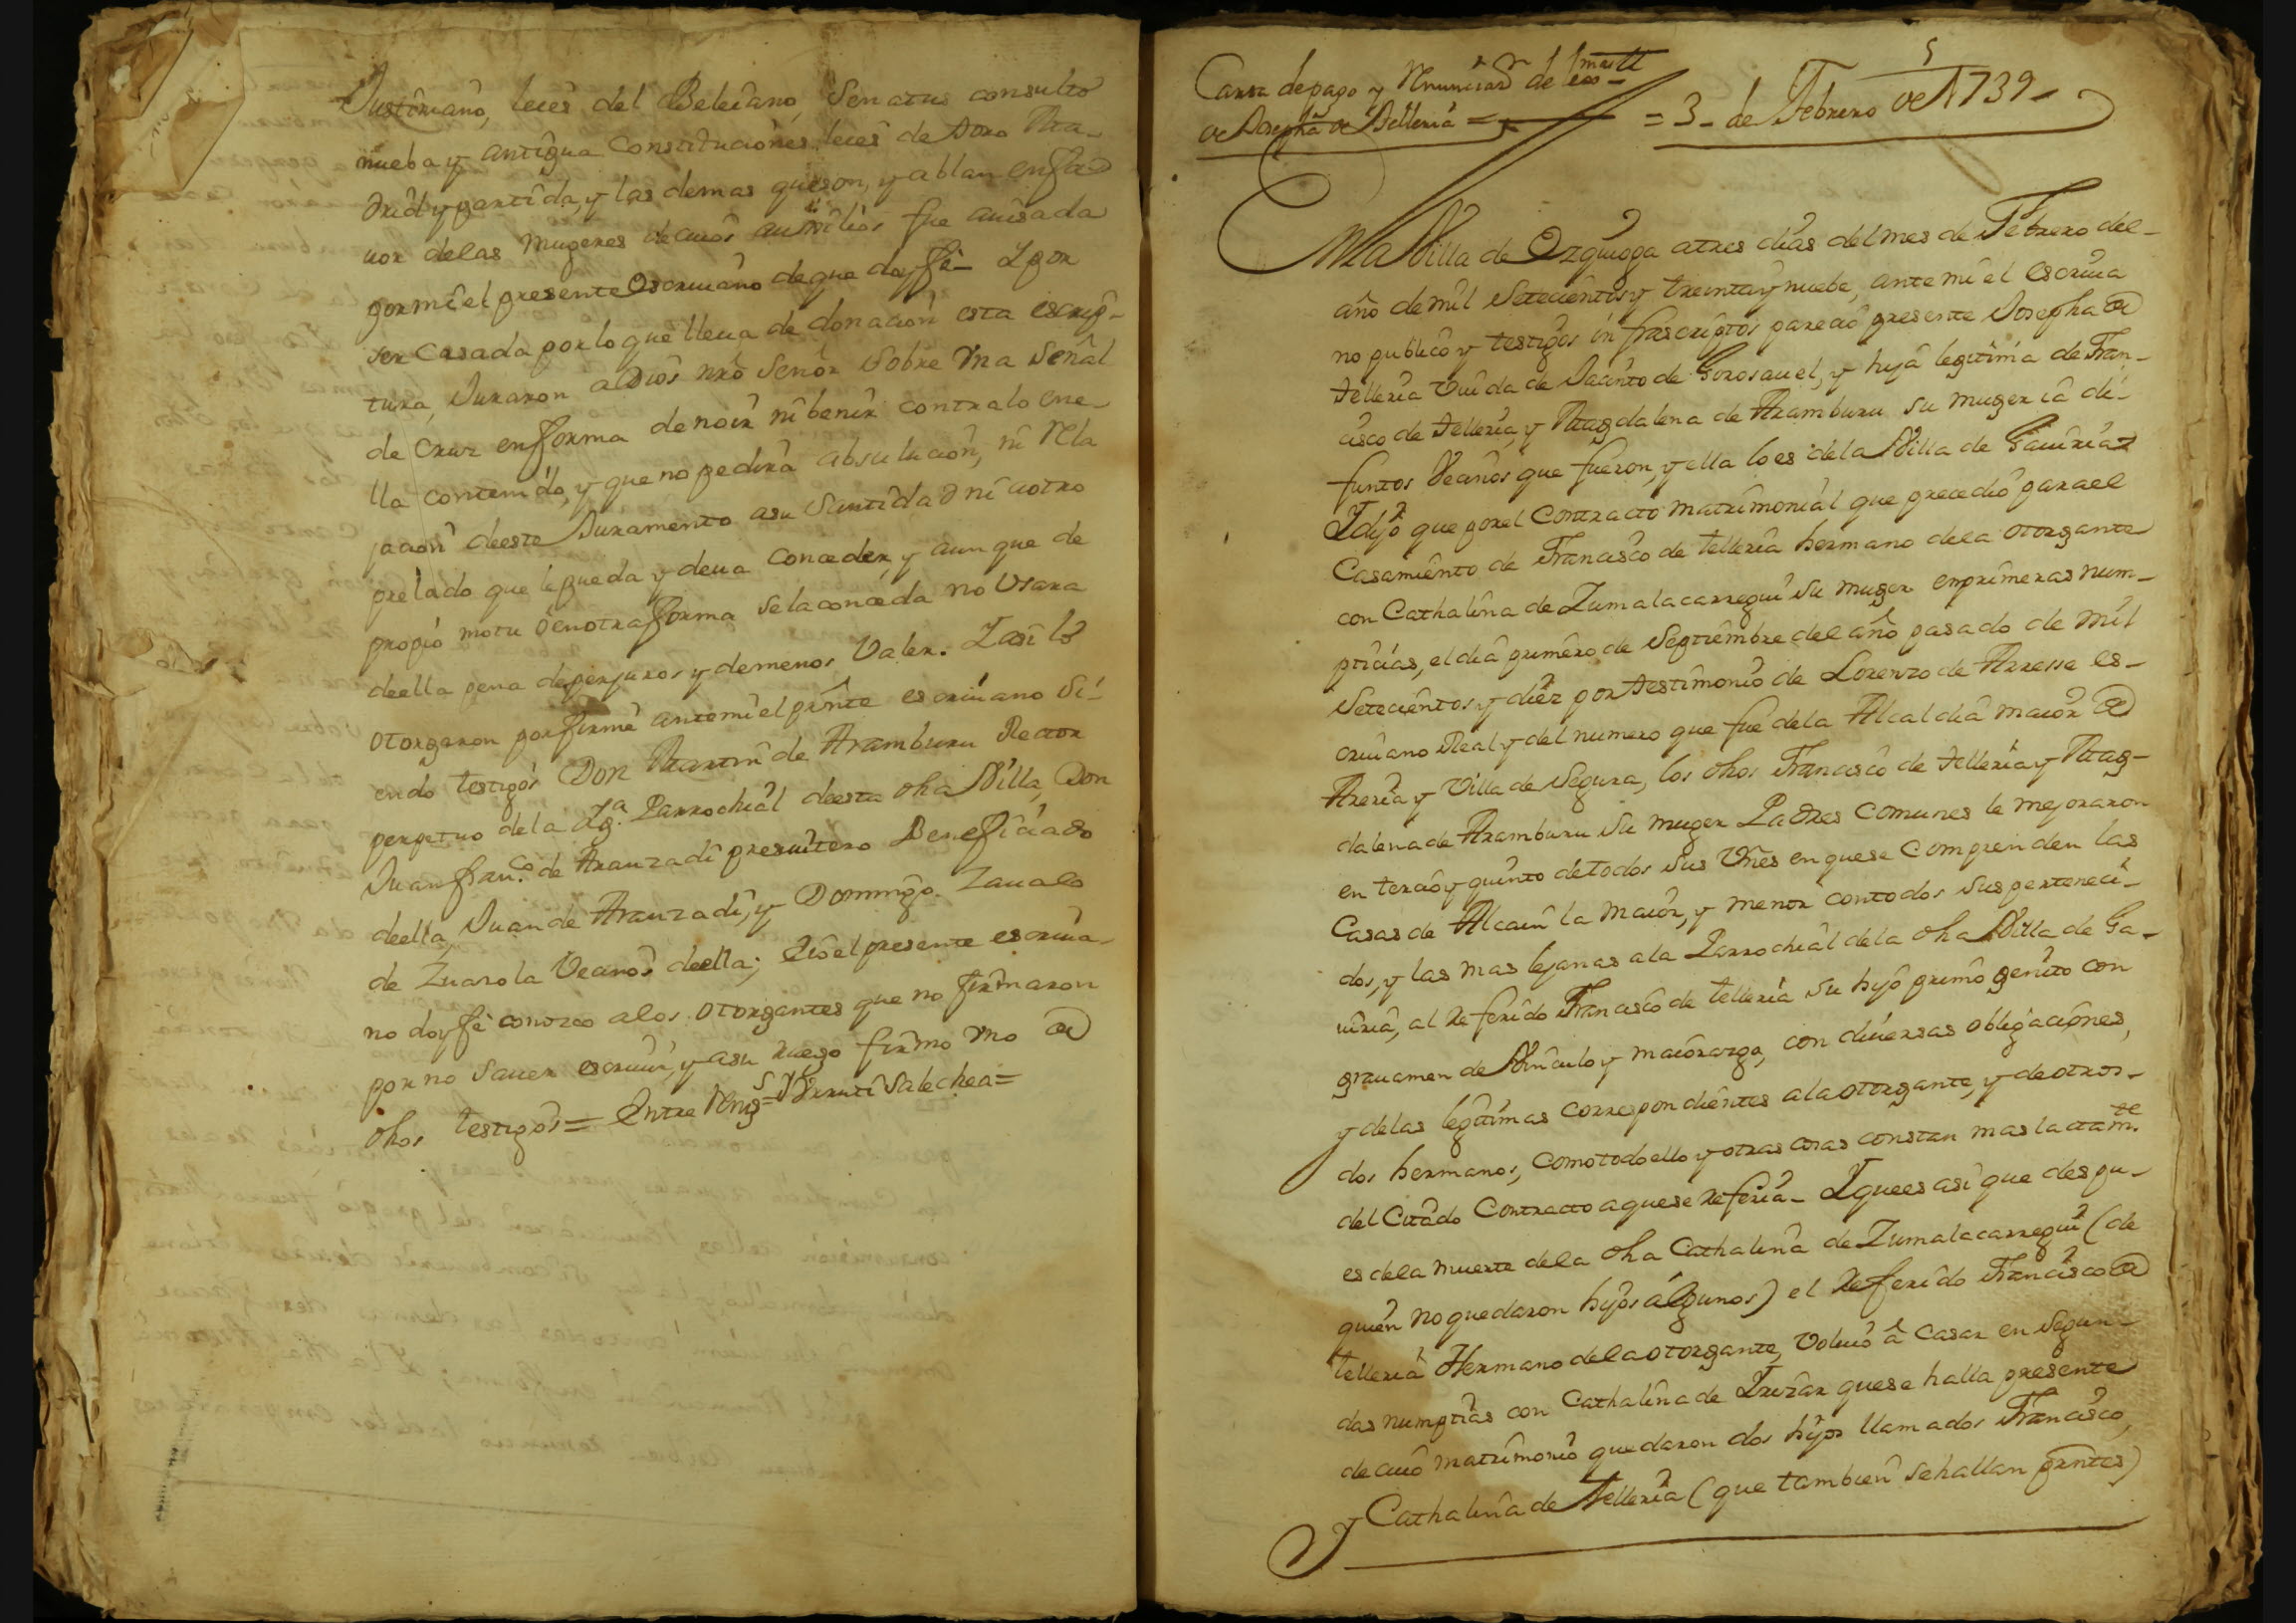 Justiniano, leies del Beleiano, Senatus consulto
nueba y antigua Constituciones, leies de Toro Ma-
drid y partida, y las demas que son, y ablan en fa-
uor delas mugeres de cuios auxilios fue auisada
por mi el presente escriuano de que doy fé - Y por
ser Casada por lo que lleua de donacion esta escrip-
tura, Juraron a Dios nrô Señor sobre Vna señal
de Cruz en forma de no ir ni benir contra lo en e-
lla contenido, y que no pedirâ absulucion, ni Rla
jacion deeste Juramento a su Santidad ni aotro
prelado que le pueda y deua conceder y aunque de
propio motu ô en otra forma se la conceda no Vsara
deella pena de perjuros y de menos Valer. Y asi lo
otorgaron por firme ante mi el prînte escriuano si-
endo testigos Don Martin de Aramburu Rector
perpetuo dela Yg.ª Parrochial deesta dha Villa, Don
Juan fran.co de Aranzadi presuitero Beneficiado
deella, Juan de Aranzadi, y Domingo Zaualo
de Zuazola Vecinos deella; Eio el presente escriua-
no doy fé conozco a los otorgantes que no firmaron
por no sauer escriuir, y a su ruego firmo vno de
dhos testigos = Entre Rengs = Vrruti Salechea =
Carta de pago y Rnunciaon de lexmas ttt
de Josepha de Telleria = 3 - de Febrero de 1739 -
5
En la Villa de Ezquioga a tres dias del mes de Febrero del
año de mil Setecientos y treinta y nuebe, ante mi el escriua
no publico y testigos infrascriptos parecio presente Josepha de
Telleria Viuda de Jacinto de Gorosauel, y hija legitima de Fran-
cisco de Telleria, y Magdalena de Aramburu su muger ia di-
funtos Vecinos que fueron, y ella lo es dela Villa de Gauiria
Y dijo que por el Contracto matrimonial que precedio para el
Casamiento de Francisco de Telleria hermano dela otorgante
con Cathalina de Zumalacarregui su muger en primeras num-
ptcias, el dia primero de Septiembre del año pasado de mil
Setecientos y diêz por testimonio de Lorenzo de Arresse es-
criuano Real y del numero que fue dela Alcaldia maior de
Areria y Villa de Segura, los dhos Francisco de Telleria y Mag-
dalena de Aramburu su muger Padres comunes le mejoraron
en tercio y quinto de todos sus Vîes en que se comprenden las
Casas de Alcain la maior, y menor con todos sus perteneci-
dos, y las mas lejanas a la Parrochial de la dha Villa de Ga-
uiria, al referido Francisco de Telleria su hijo primo genito con
grauamen de Vinculo y maiorazgo, con diuersas obligaciones,
y delas legitimas correspondientes a la otorgante, y de otros
dos hermanos, como todo ello y otras cosas constan mas lactamte.
del Citado Contracto a que se referia - Y que es asi que despu-
es dela muerte dela dha Cathalina de Zumalacarregui (de
quien no quedaron hijos algunos) el referido Francisco de
Telleria Hermano dela otorgante, Voluio â Casar en segun-
das numptias con Cathalina de Irizar que se halla presente
de cuio matrimonio quedaron dos hijos llamados Francisco,
y Cathalina de Telleria (que tambien se hallan prîntes)